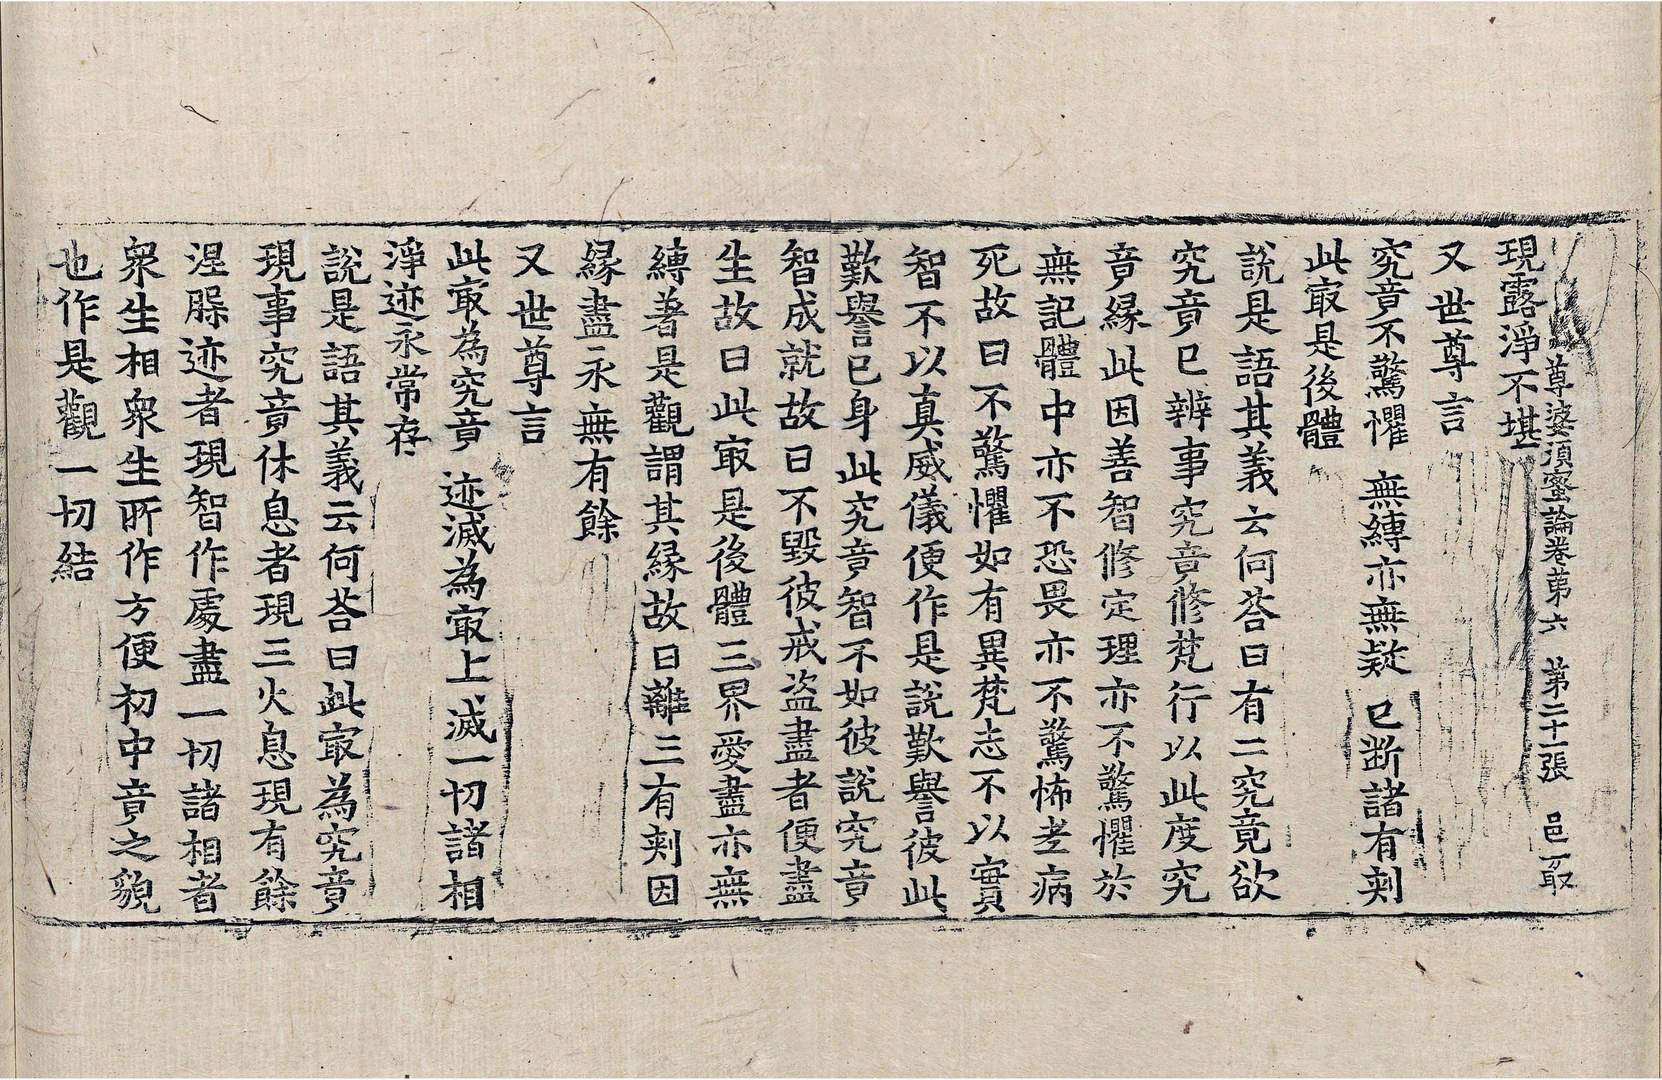 尊婆須蜜論卷苐六　第二十一張　邑一取
現露淨不堪
又世尊言
究竟不驚懼　無縛亦無疑　已断諸有刾
此㝡是後體
說是語其義云何荅曰有二究竟欲
究竟已辨事究竟修梵行以此度究
竟縁此因善智修定理亦不驚懼於
無記體中亦不恐畏亦不驚怖老病
死故曰不驚懼如有異梵志不以實
智不以真威儀便作是說歎譽彼此
歎譽已身此究竟智不如彼說究竟
智成就故曰不毀彼戒盜盡者便盡
生故曰此㝡是後體三界愛盡亦無
縛著是觀謂其縁故曰離三有刾因
縁盡永無有餘
又世尊言
此㝡為究竟　迹滅為㝡上　滅一切諸相
淨迹永常存
說是語其義云何荅曰此㝡為究竟
現事究竟休息者現三火息現有餘
涅槃迹者現智作處盡一切諸相者
衆生相衆生所作方便初中竟之貌
也作是觀一切結